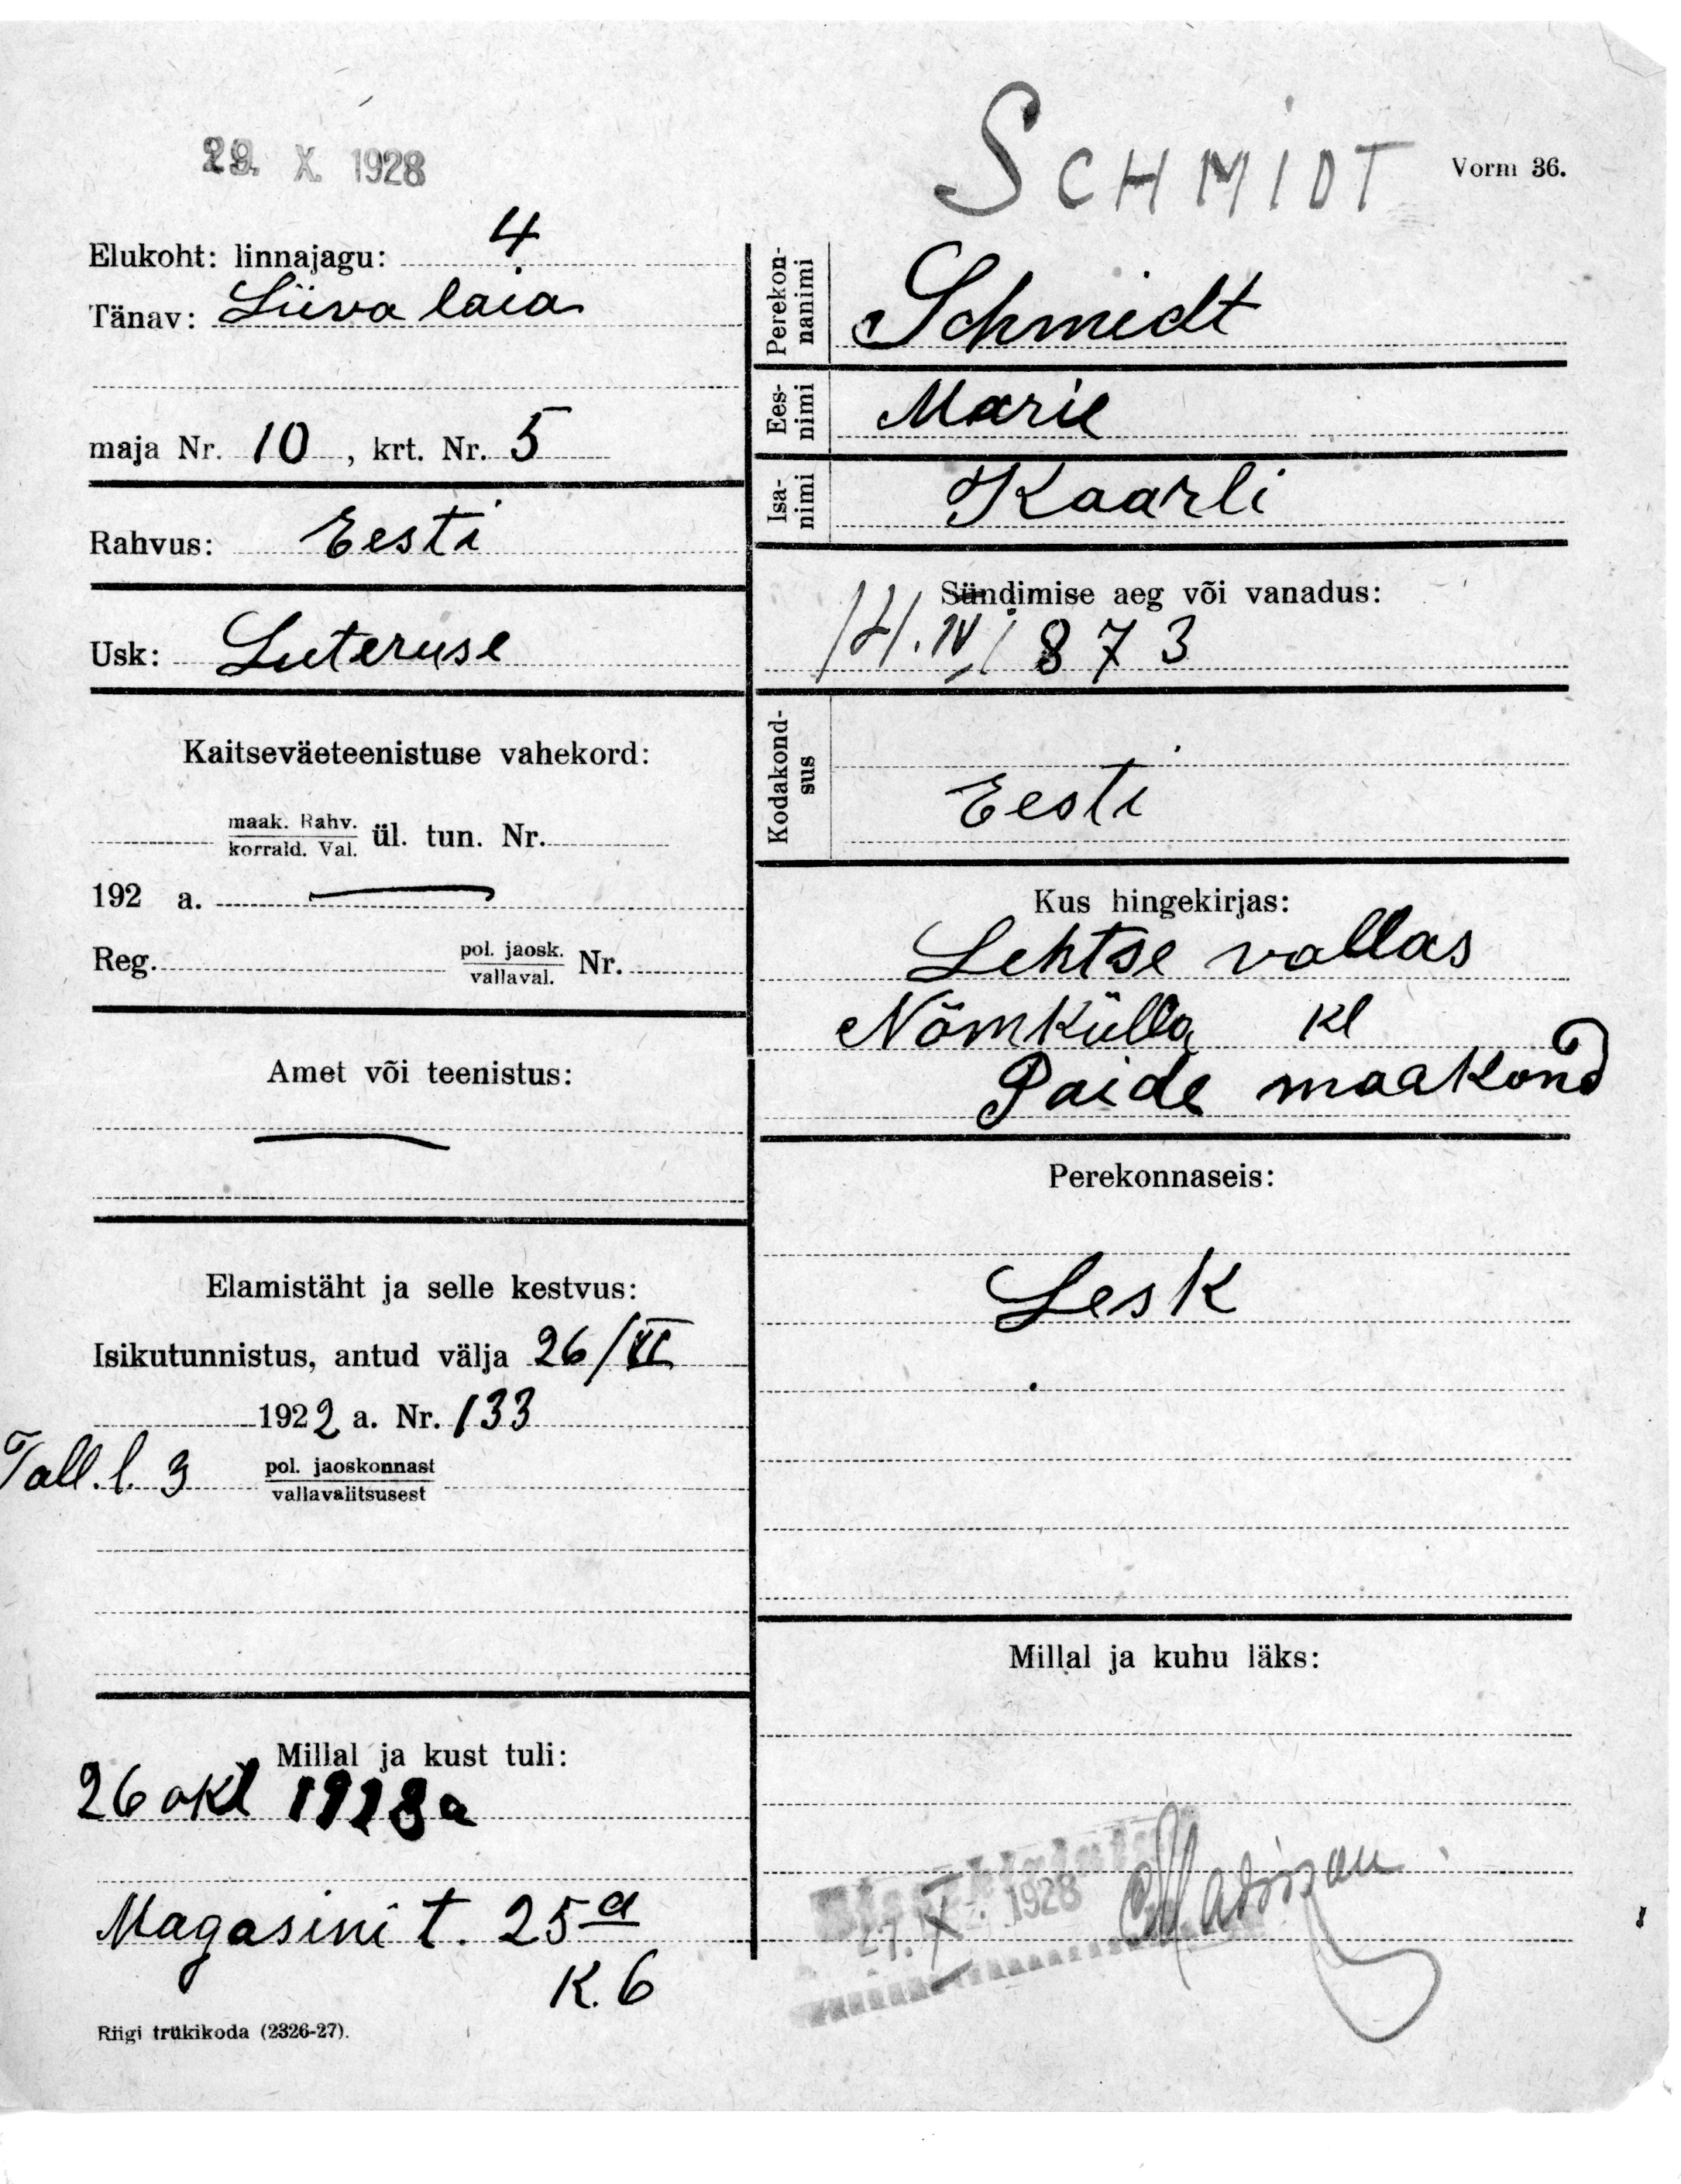 29. X. 1928
SCHMIDT
Vorm 36.
Elukoht: linnajagu: 4
Tänav: Liiva laia
maja Nr. 10, krt. Nr. 5
Rahvus: Eesti
Usk: Luteruse
Kaitseväeteenistuse vahekord:
maak. Rahv.
korrald. Val. ül. tun. Nr.
192 a.
Reg. pol. jaosk.
vallaval. Nr.
Amet või teenistus:
Elamistäht ja selle kestvus:
Isikutunnistus, antud välja 26/VI
1922 a. Nr. 133
Tall. l. 3 pol. jaoskonnast
vallavalitsusest
Millal ja kust tuli:
26 okt 1928 a
Magasini t. 25a
K. 6
Riigi trükikoda (2326-27).
Perekon-
nanimi
Schmidt
Ees-
nimi
Marie
Isa-
nimi
Kaarli
Sündimise aeg või vanadus:
14. IV 1873
Kodakond-
sus
Eesti
Kus hingekirjas:
Lehtse vallas
Nõmkülla kl
Paide maakond
Perekonnaseis:
Lesk
Millal ja kuhu läks:
27. X. 1928